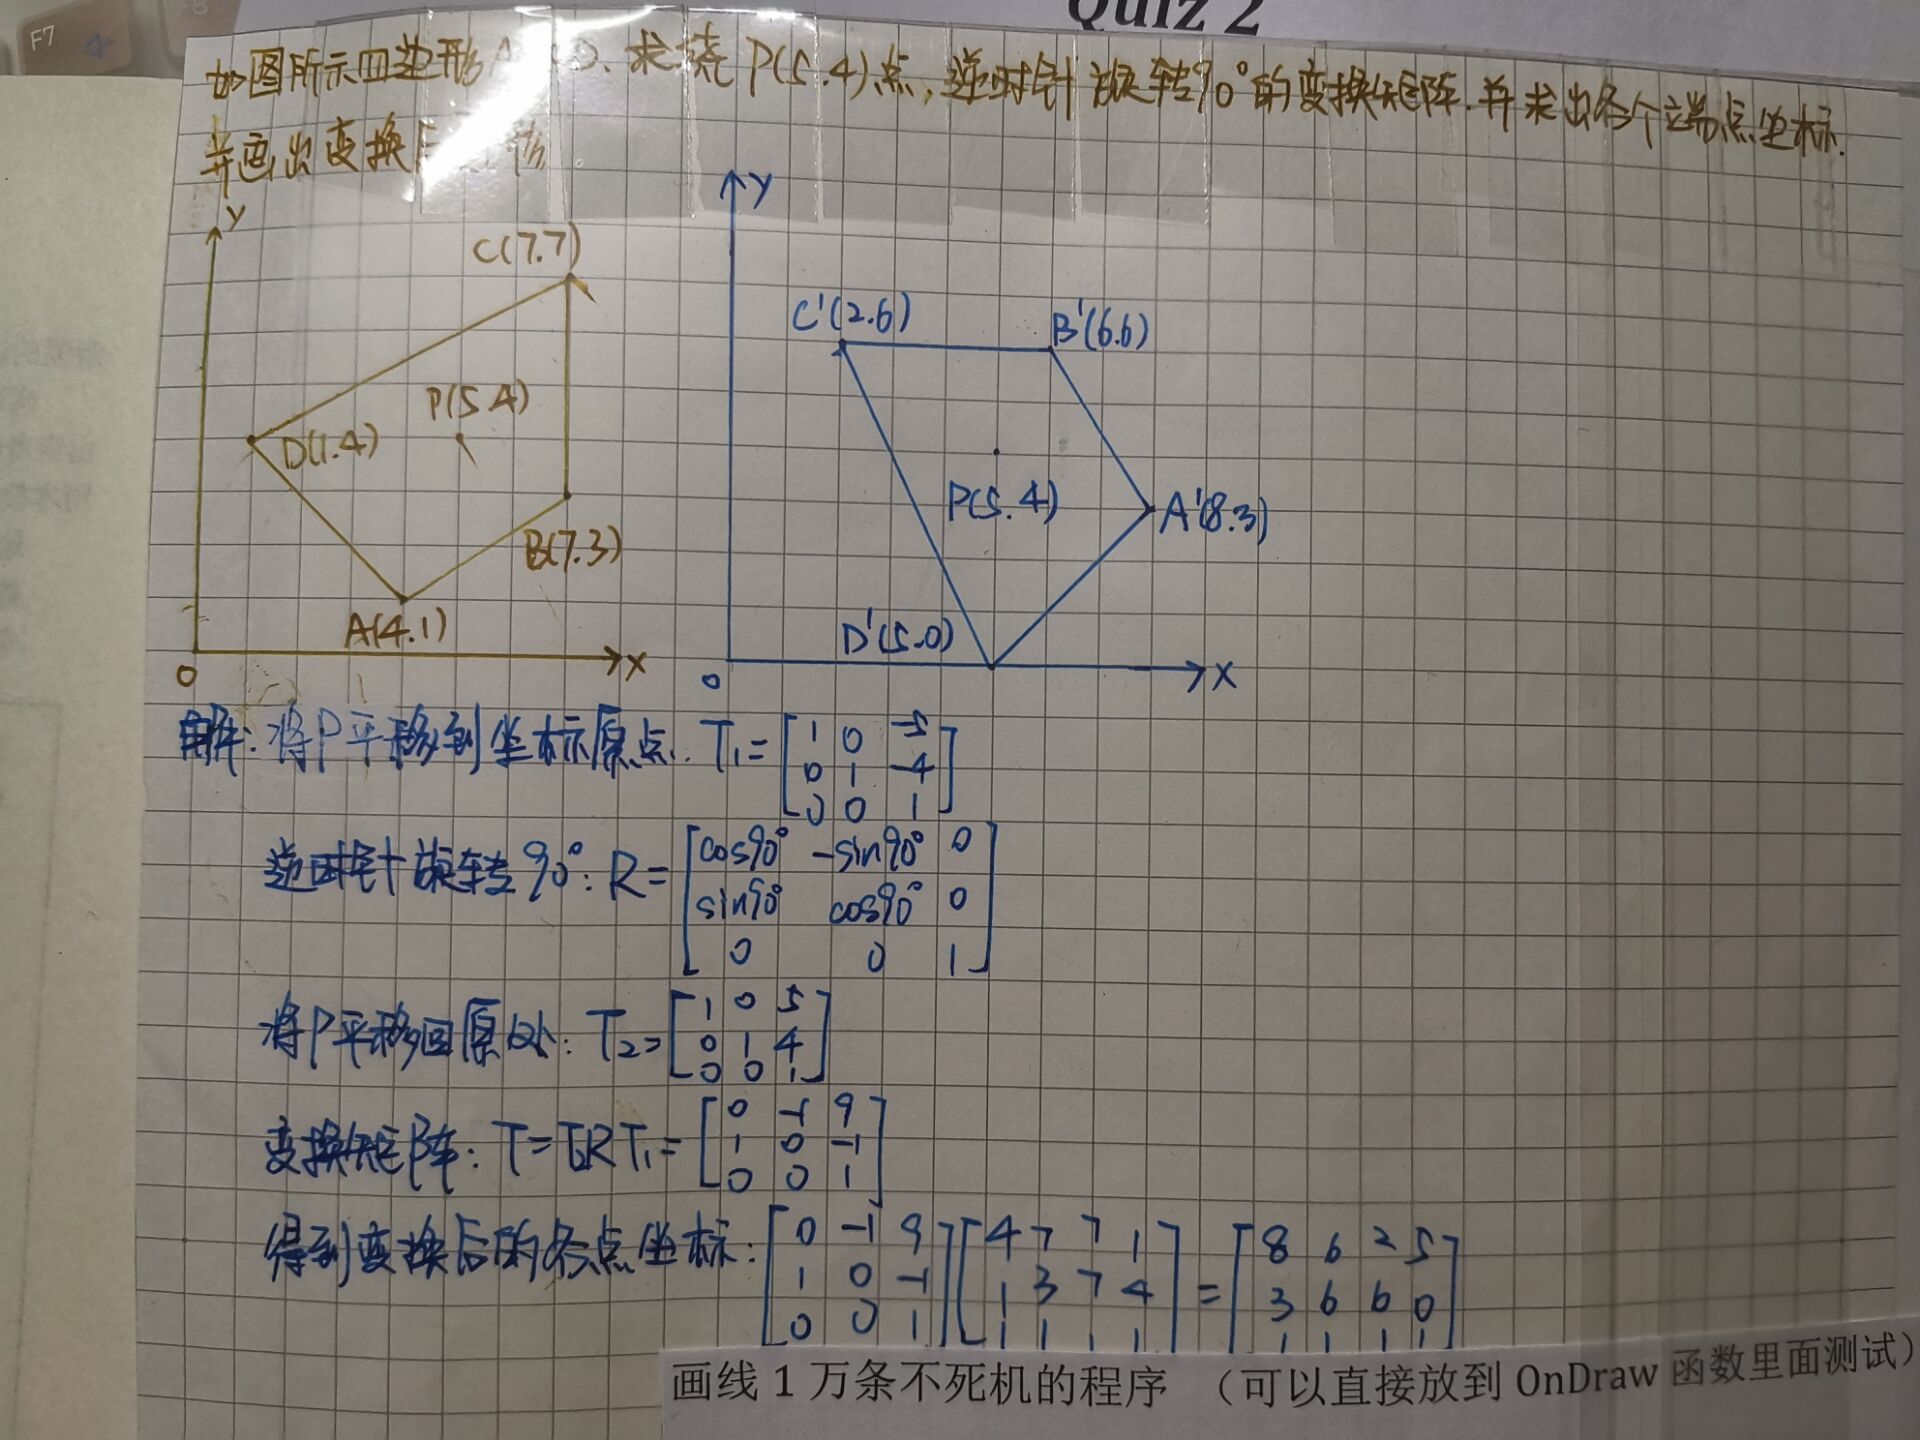 F7
Quiz 2
如图所示四边形A D. 求绕P(5.4)点,逆时针旋转90°的变换矩阵.并求出各个端点坐标.
并画出变换后
Y
C(7.7)
P(5.4)
D(1.4)
B(7.3)
A(4.1)
O
X
Y
C'(2.6)
B'(6.6)
P(5.4)
A'(8.3)
D'(5.0)
O
X
解:将P平移到坐标原点. T₁=[1 0 -5
0 1 -4
0 0 1]
逆时针旋转90°: R=[cos90° -sin90° 0
sin90° cos90° 0
0 0 1]
将P平移回原处: T₂=[1 0 5
0 1 4
0 0 1]
变换矩阵: T=T₂RT₁=[0 -1 9
1 0 -1
0 0 1]
得到变换后的各点坐标:[0 -1 9
1 0 -1
0 0 1][4 7 7 1
1 3 7 4
1 1 1 1]=[8 6 2 5
3 6 6 0
1 1 1 1]
画线1万条不死机的程序 (可以直接放到OnDraw函数里面测试)